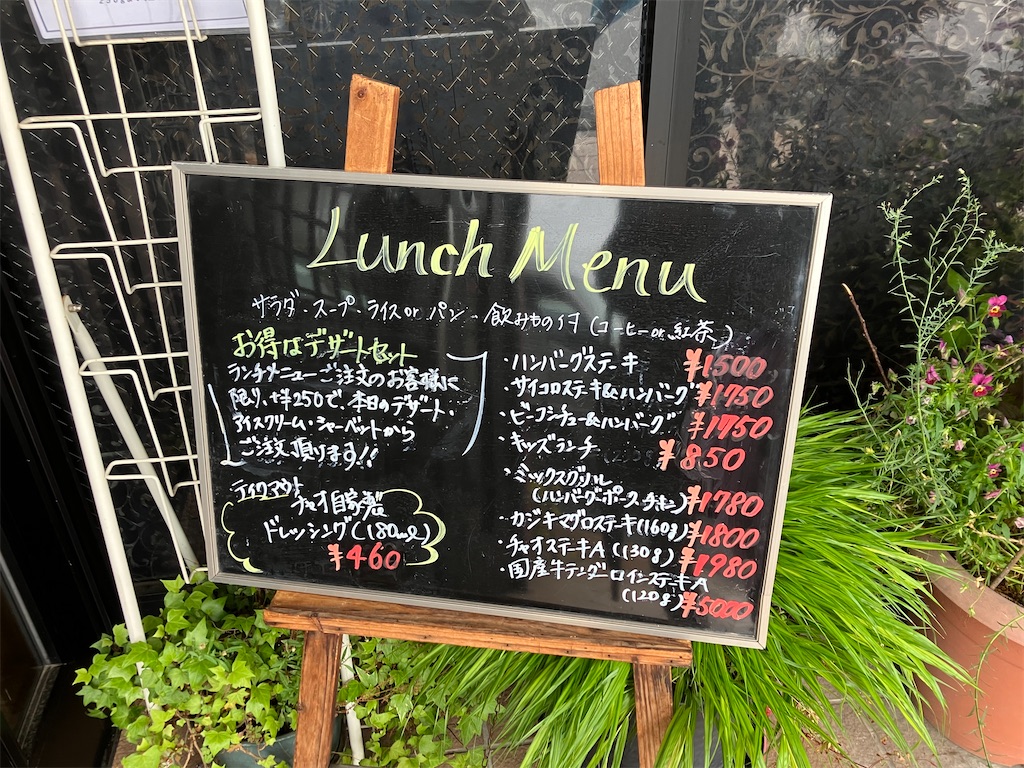 Lunch Menu
サラダ・スープ・ライス or パン・飲みもの付 (コーヒー or 紅茶)
お得なデザートセット
ランチメニューご注文のお客様に
限り、+¥250で、本日のデザート・
アイスクリーム・シャーベットから
ご注文頂けます!!
テイクアウト
チャオ自家製
ドレッシング(180ml)
¥460
・ハンバーグステーキ ¥1500
・サイコロステーキ&ハンバーグ ¥1750
・ビーフシチュー&ハンバーグ ¥1750
・キッズランチ ¥850
・ミックスグリル
(ハンバーグ・ポーク・チキン) ¥1780
・カジキマグロステーキ(160g) ¥1800
・チャオステーキA (130g) ¥1980
・国産牛テンダーロインステーキA
(120g) ¥5000